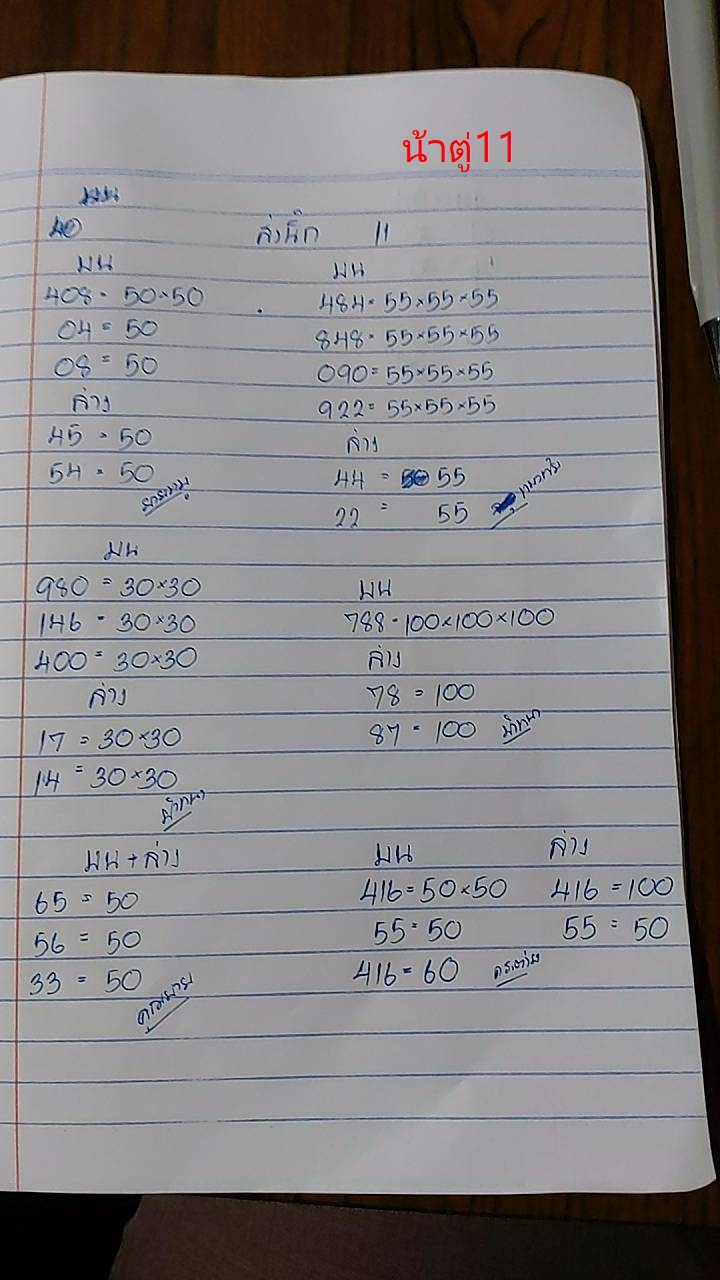 น้าตู่11
บน
40
ส่งนิก 11
บน
408 = 50×50
04 = 50
08 = 50
ล่าง
45 = 50
54 = 50
บน
484 = 55×55×55
848 = 55×55×55
090 = 55×55×55
922 = 55×55×55
ล่าง
44 = 55
22 = 55
บน
980 = 30×30
146 = 30×30
400 = 30×30
ล่าง
17 = 30×30
14 = 30×30
บน
788 = 100×100×100
ล่าง
78 = 100
87 = 100
บน + ล่าง
65 = 50
56 = 50
33 = 50
บน
416 = 50×50
55 = 50
416 = 60
ล่าง
416 = 100
55 = 50